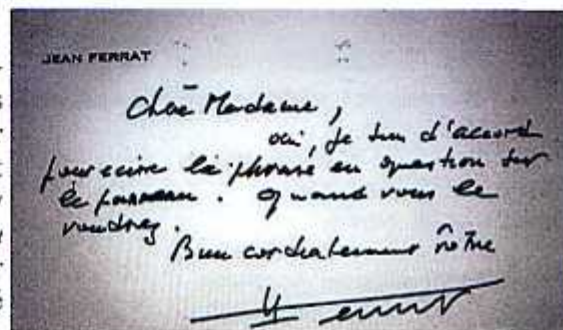 JEAN FERRAT
Chère Madame,
oui, je suis d'accord
pour écrire la phrase en question sur
le panneau. Quand vous le
voudrez.
Bien cordialement vôtre